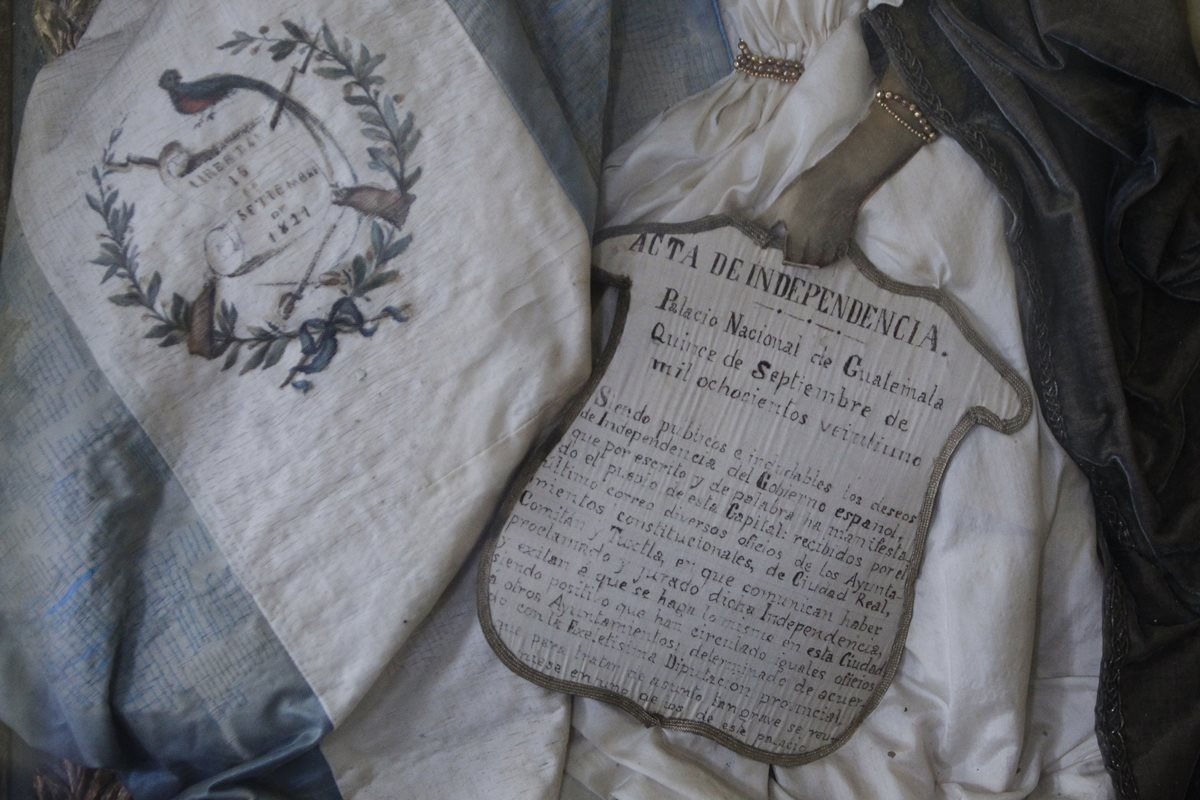 LIBERTAD
15
DE
SETIEMBRE
DE
1821
ACTA DE INDEPENDENCIA.
Palacio Nacional de Guatemala
Quince de Septiembre de
mil ochocientos veintiuno
Siendo publicos e indudables los deseos
de Independencia del Gobierno español,
que por escrito y de palabra ha manifesta
do el pueblo de esta Capital: recibidos por el
último correo diversos oficios de los Ayunta-
mientos constitucionales, de Ciudad Real,
Comitan y Tuxtla, en que comunican haber
proclamado y jurado dicha Independencia,
y exitan á que se haga lo mismo en esta Ciudad
siendo positivo que han circulado iguales oficios
a otros Ayuntamientos; determinado de acuer-
do con la Exeletisima Diputacion provincial,
que para tratar de asunto tan grave se reu
niese en uno de los de este palacio